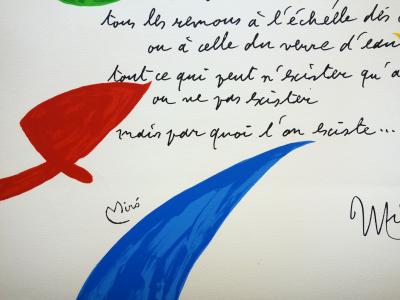 tous les remous à l'échelle des
ou à celle du verre d'eau
tout ce qui peut n'exister qu'à
ou ne pas exister
mais par quoi l'on existe...
Miró
Mi